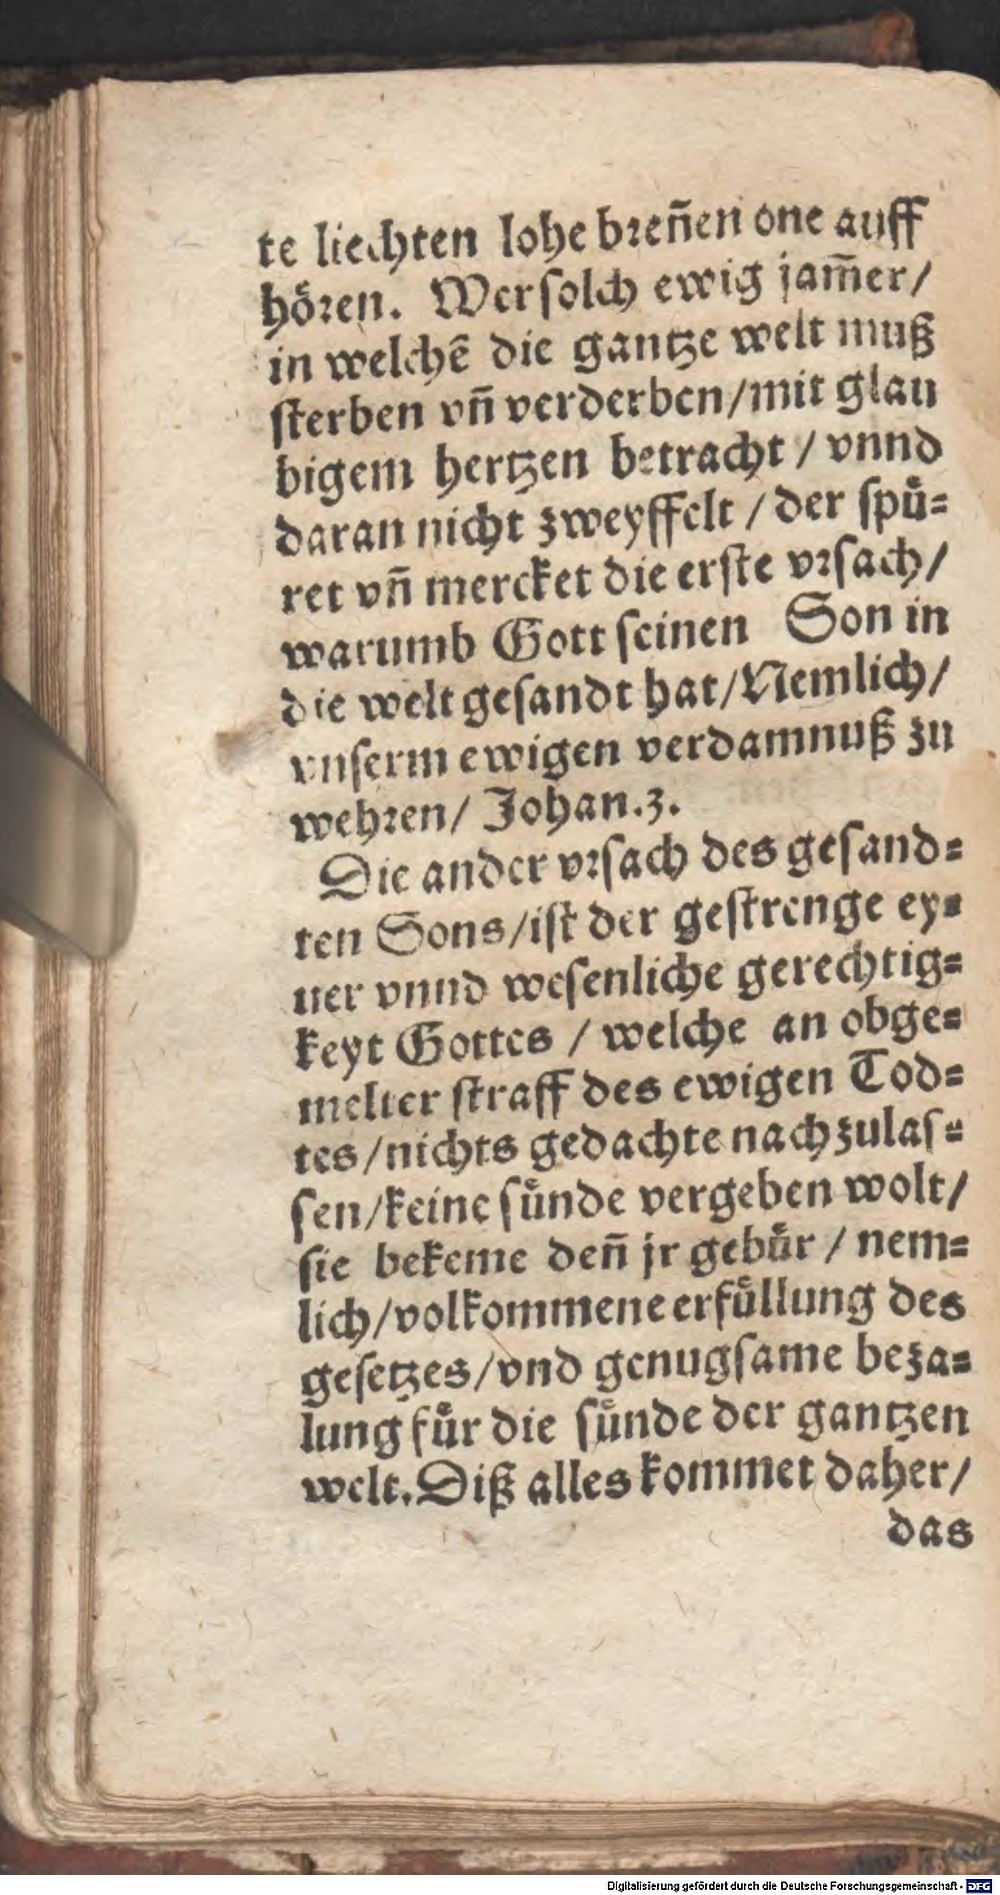 te liechten lohe breñen one auff
hoͤren. Wer ſolch ewig jam̃er/
in welchẽ die gantze welt muß
ſterben vñ verderben/mit glau
bigem hertzen betracht / vnnd
daran nicht zweyffelt / der ſpuͤ⸗
ret vñ mercket die erſte vrſach/
warumb Gott ſeinen Son in
die welt geſandt hat/Nemlich/
vnſerm ewigen verdamnuß zu
wehren/ Johan.3.
Die ander vrſach des geſand⸗
ten Sons/iſt der geſtrenge ey⸗
uer vnnd weſenliche gerechtig⸗
keyt Gottes / welche an obge⸗
melter ſtraff des ewigen Tod⸗
tes/nichts gedachte nachzulaſ⸗
ſen/keine ſuͤnde vergeben wolt/
ſie bekeme deñ jr gebuͤr / nem⸗
lich/volkommene erfuͤllung des
geſetzes/vnd genugſame beza⸗
lung fuͤr die ſuͤnde der gantzen
welt. Diß alles kommet daher/
das
Digitalisierung gefördert durch die Deutsche Forschungsgemeinschaft - DFG